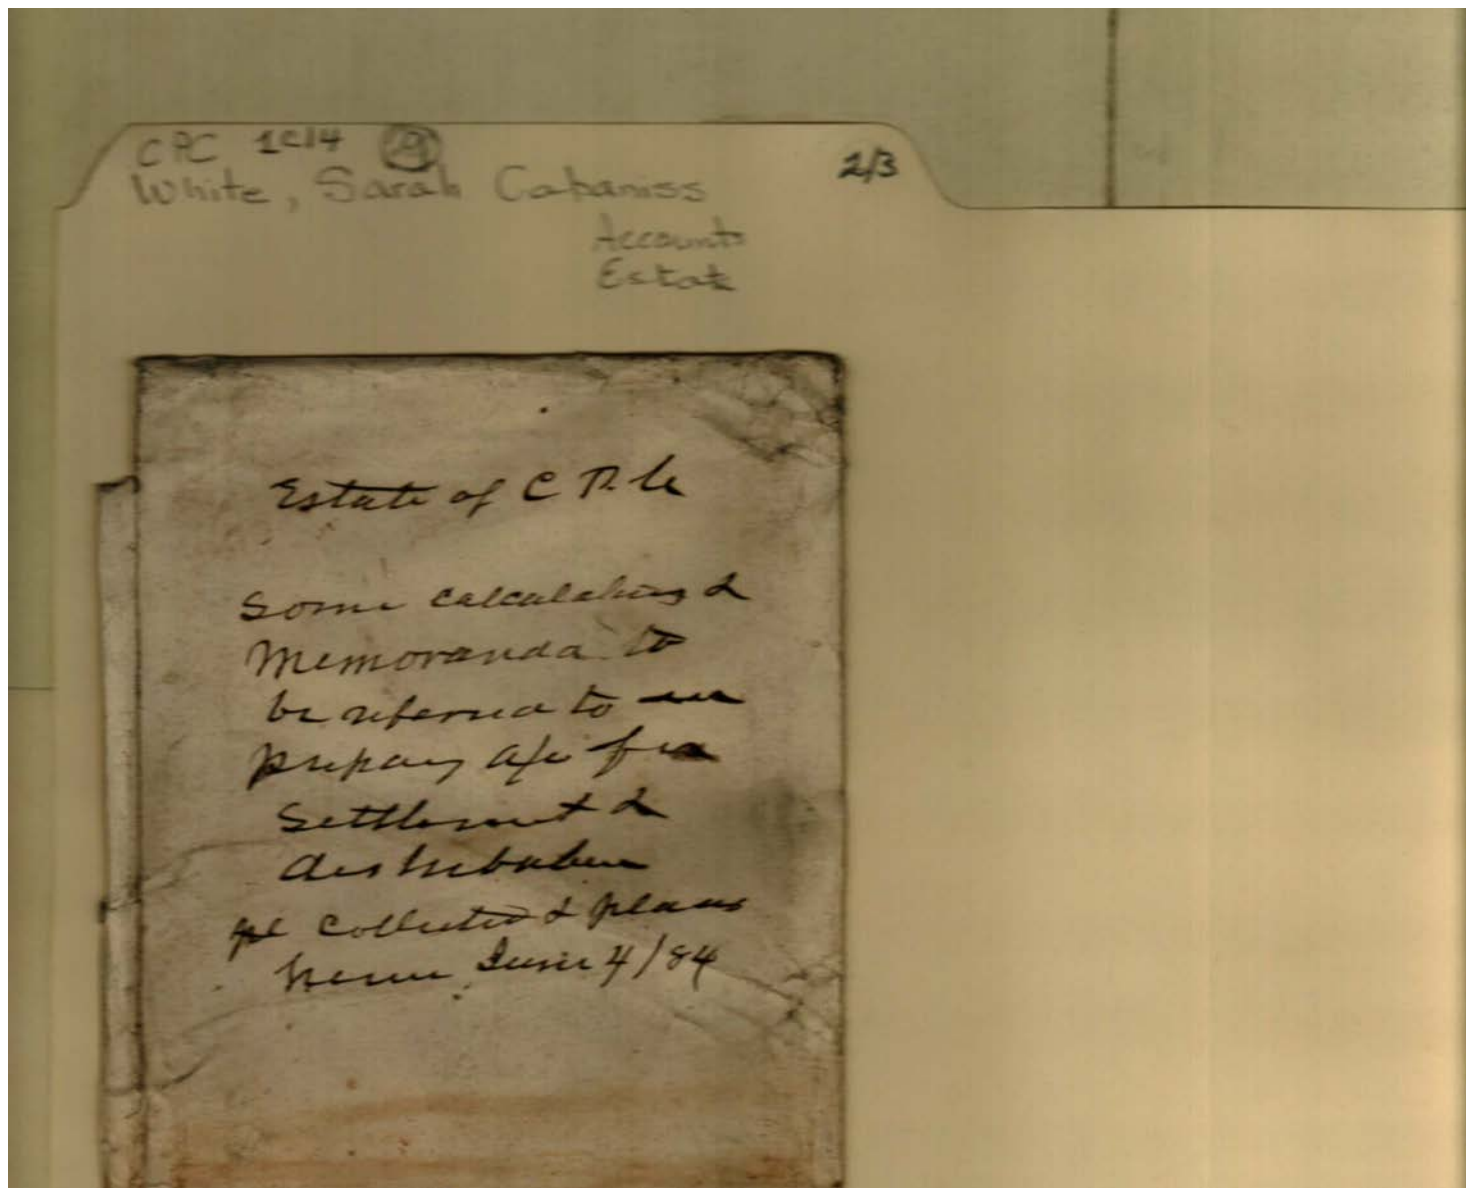 CPC 1C14
2/3
White, Sarah Cabaniss
Accounts
Estate
Estate of C P. C
Some calculations &
Memoranda to
be referred to in
preparing a/c for
Settlement &
distribution
Collected & placed
herein June 4/84